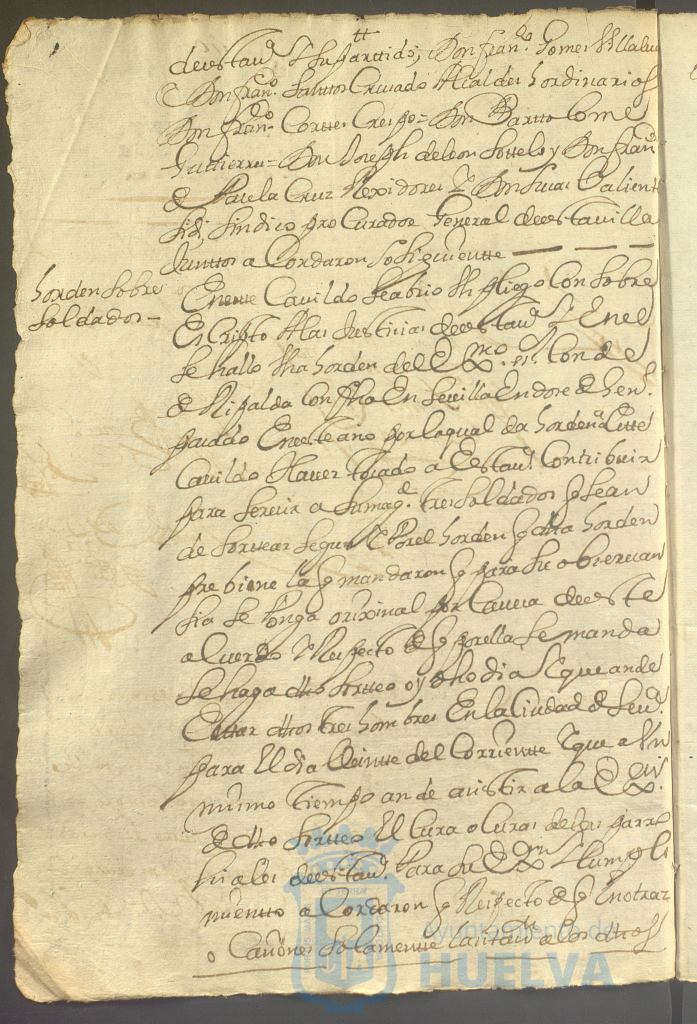 de esta v.ª y su parttido, Don Fran.co Gomez Villalva
Don Fran.co Santtos Cruzado Alcaldes hordinarios
Don Fran.co Corttes Crespo = Don Barttolome
Gutierrez = Don Joseph de Leon Sottelo y Don Fran.co
de la Cruz Rexidores y Don Lucas Caliente
sindico procurador General de esta villa
Junttos acordaron lo siguientte
horden sobre
soldados
En estte Cavildo se abrio un pliego con sobre
escripto a las Justicias de esta v.ª y en el
se hallo una horden del Ex.mo s.r Conde
de Ripalda con fha en Sevilla en dose de hen.º
pasado en este año por la qual da horden a estte
Cavildo haver tocado a esta v.ª contribuir
para servir a su mag.d tres soldados q sean
de sorttear segun y por el horden q dha horden
prebiene la q mandaron q para su observan
sia se ponga orixinal por caveza de este
acuerdo y Respecto de q por ella se manda
se haga dho sortteo oy dho dia y que an de
estar dhos tres hombres en la Ciudad de Sev.ª
para el dia veintte del corrientte y que a un
mismo tiempo an de asistir a la
de dho sortteo el Cura o Curas de las parro
quiales de esta v.ª Para su y cumpli
mientto acordaron q Respecto de q en otras
ocasiones solamentte
Ayuntamiento de
HUELVA